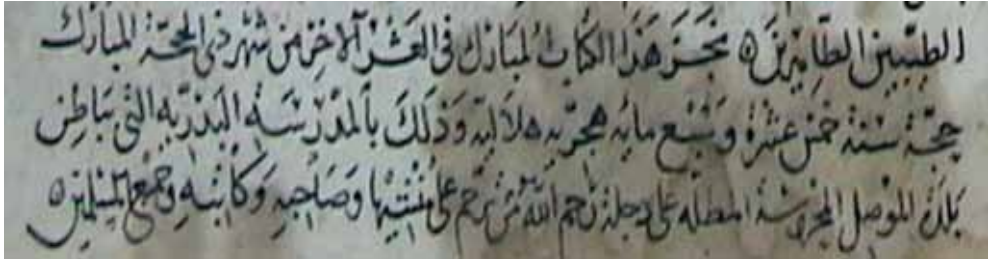 الطيبين الطاهرين ه نجز هذا الكتاب المبارك في العشر الاخر من شهر ذى الحجة المبارك
حجة سنة خمس عشرة وسبع مايه هجريه هلاليه وذلك بالمدرسه البدريه التي بباطن
بلدة الموصل المحروسة المطله على دجلة رحم الله من ترحم على منشيها وصاحبه وكاتبه وجميع المسلمين ه